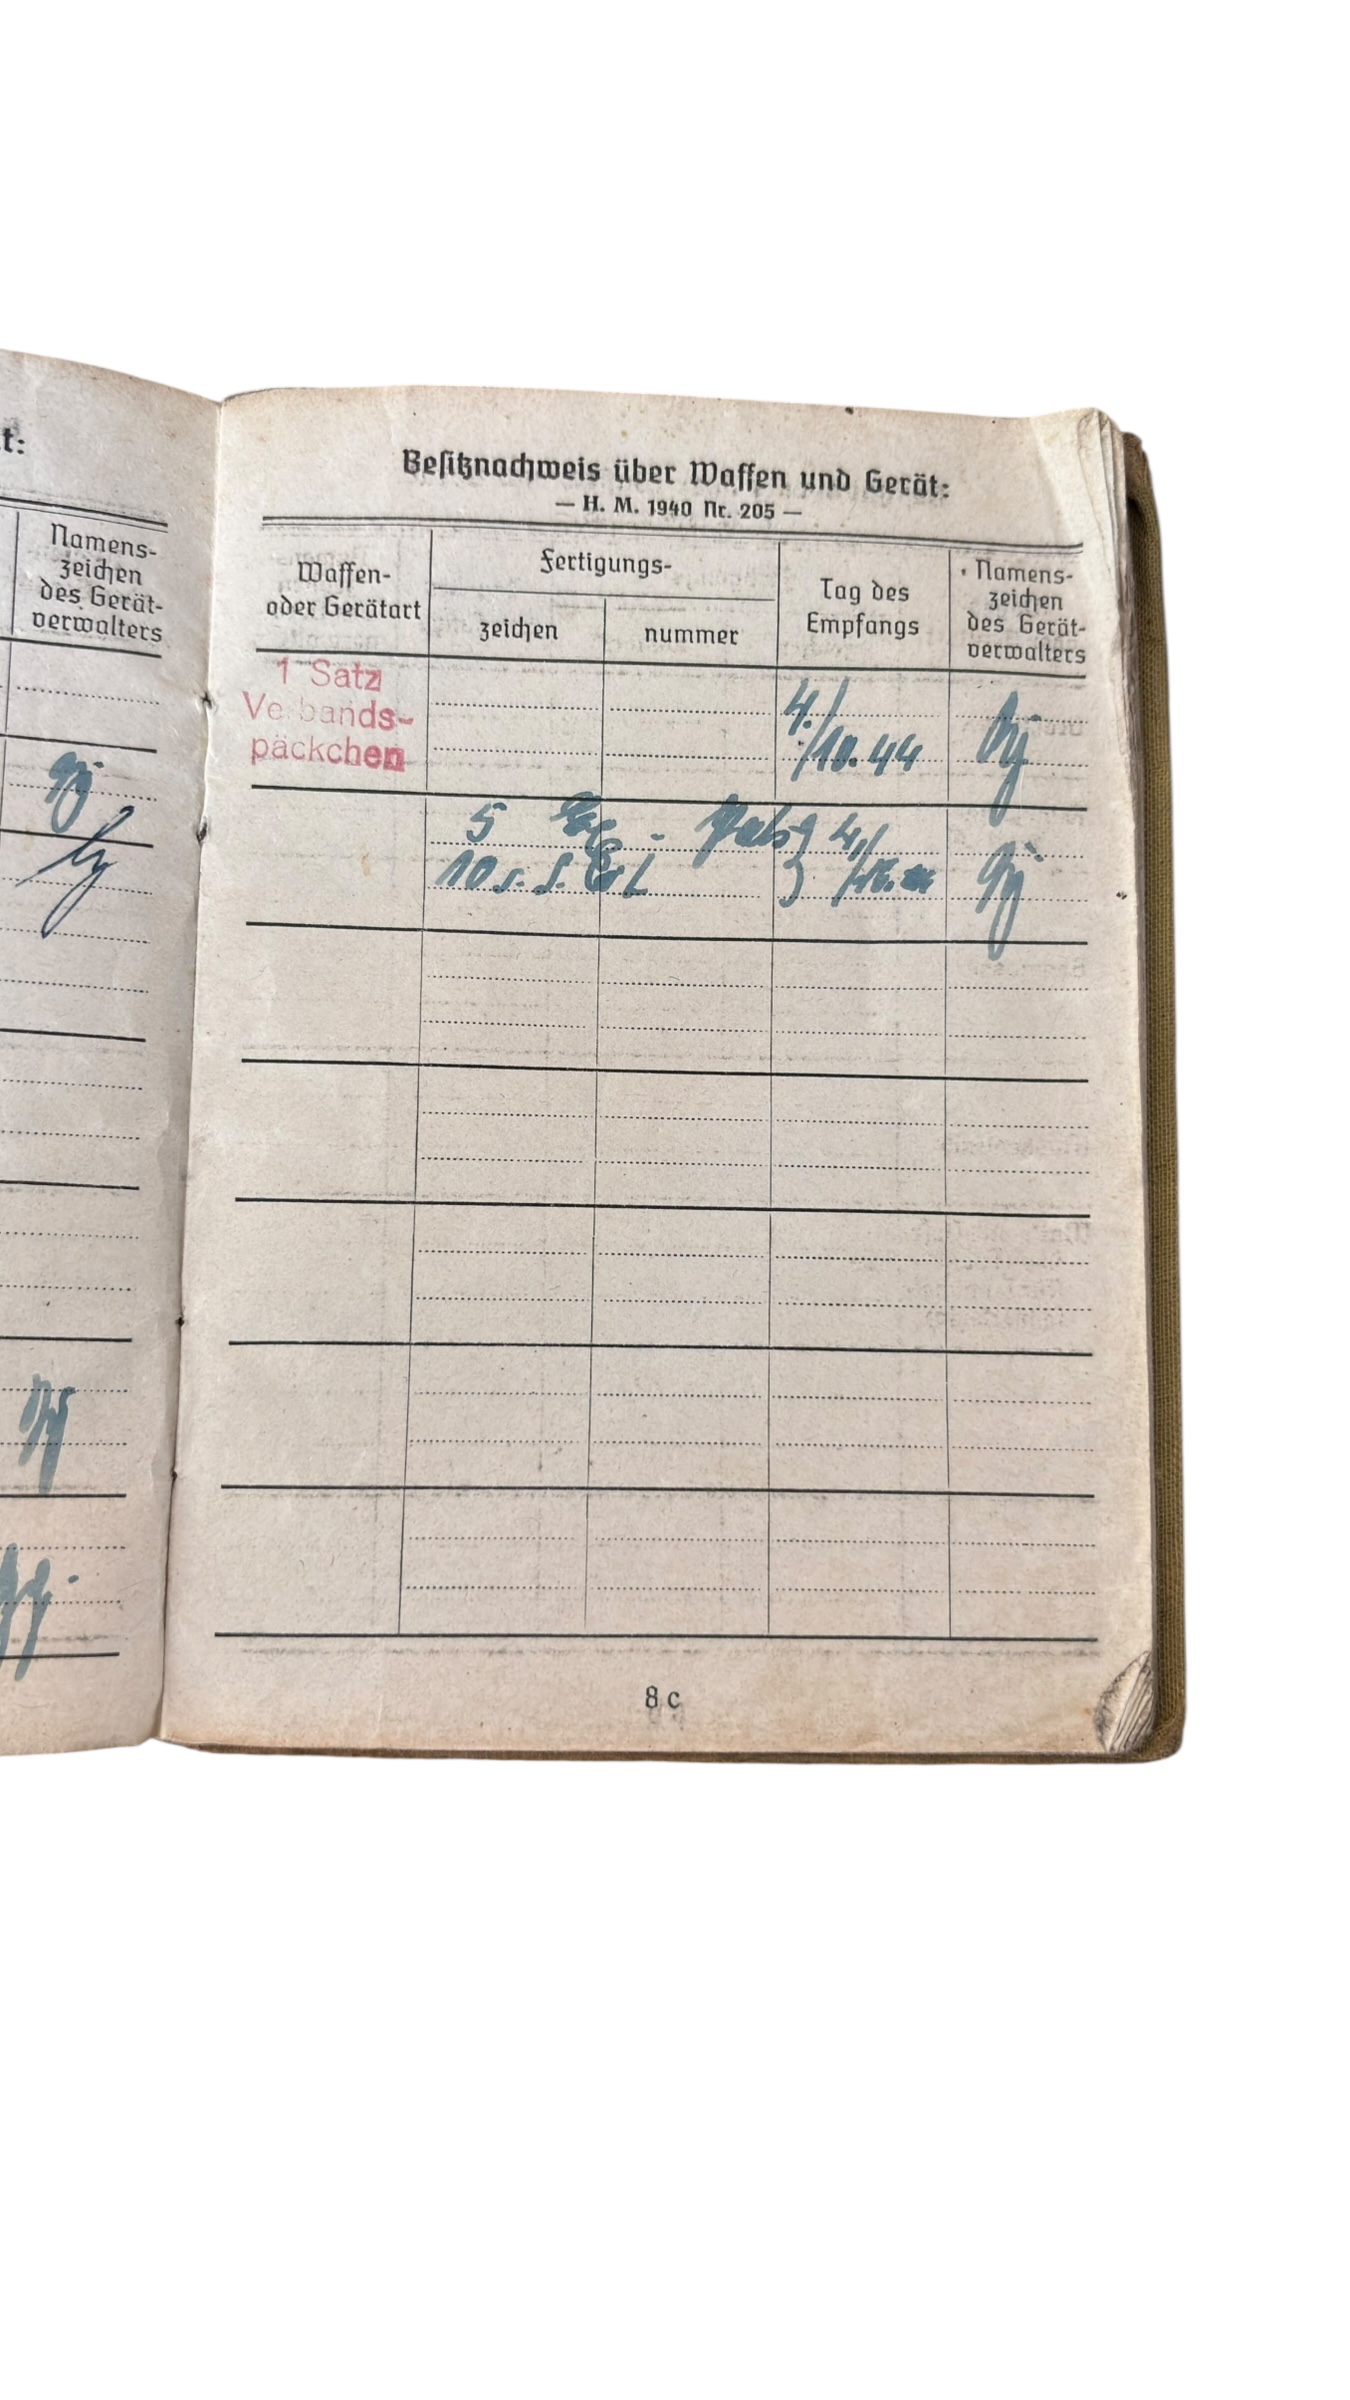 t:
Namens-
zeichen
des Gerät-
verwalters
Besitznachweis über Waffen und Gerät:
— H. M. 1940 Nr. 205 —
Waffen-
oder Gerätart
Fertigungs-
zeichen
nummer
Tag des
Empfangs
Namens-
zeichen
des Gerät-
verwalters
1 Satz
Verbands-
päckchen
4./
/10.44
5
4./
10 s. S.
8 c